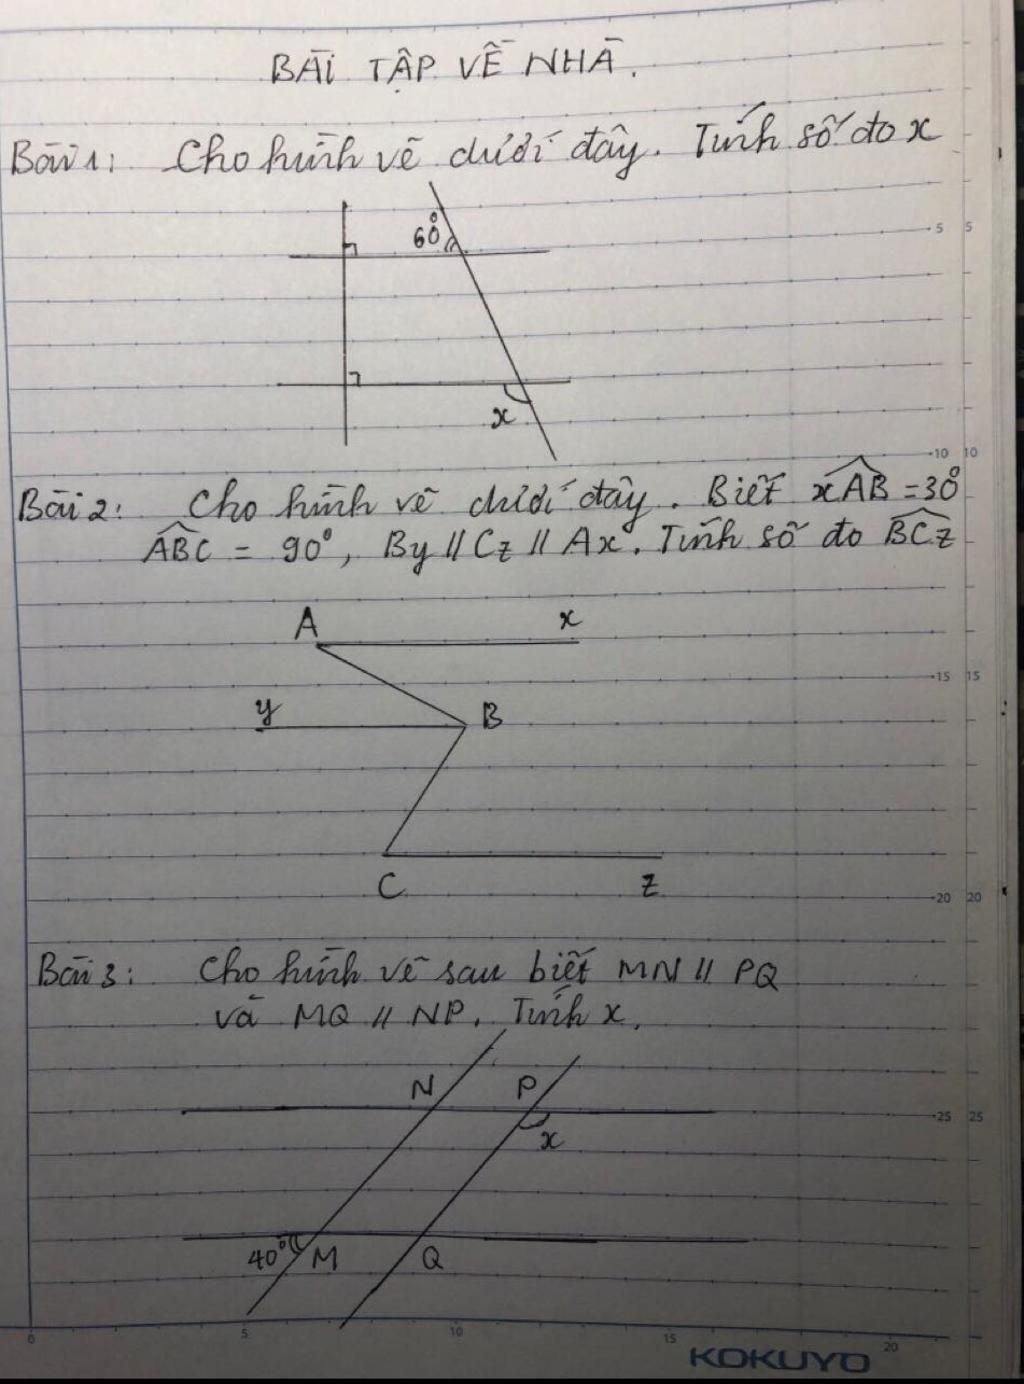 BÀI TẬP VỀ NHÀ.
Bài 1: Cho hình vẽ dưới đây. Tính số đo x
60°
x
5 5
10 10
Bài 2: Cho hình vẽ dưới đây. Biết xAB = 30°
ABC = 90°, By // Cz // Ax. Tính số đo BCz
A x
15 15
y B
C z
20 20
Bài 3: Cho hình vẽ sau biết MN // PQ
và MQ // NP. Tính x.
N P
25 25
x
40° M Q
0 5 10 15 20
KOKUYO